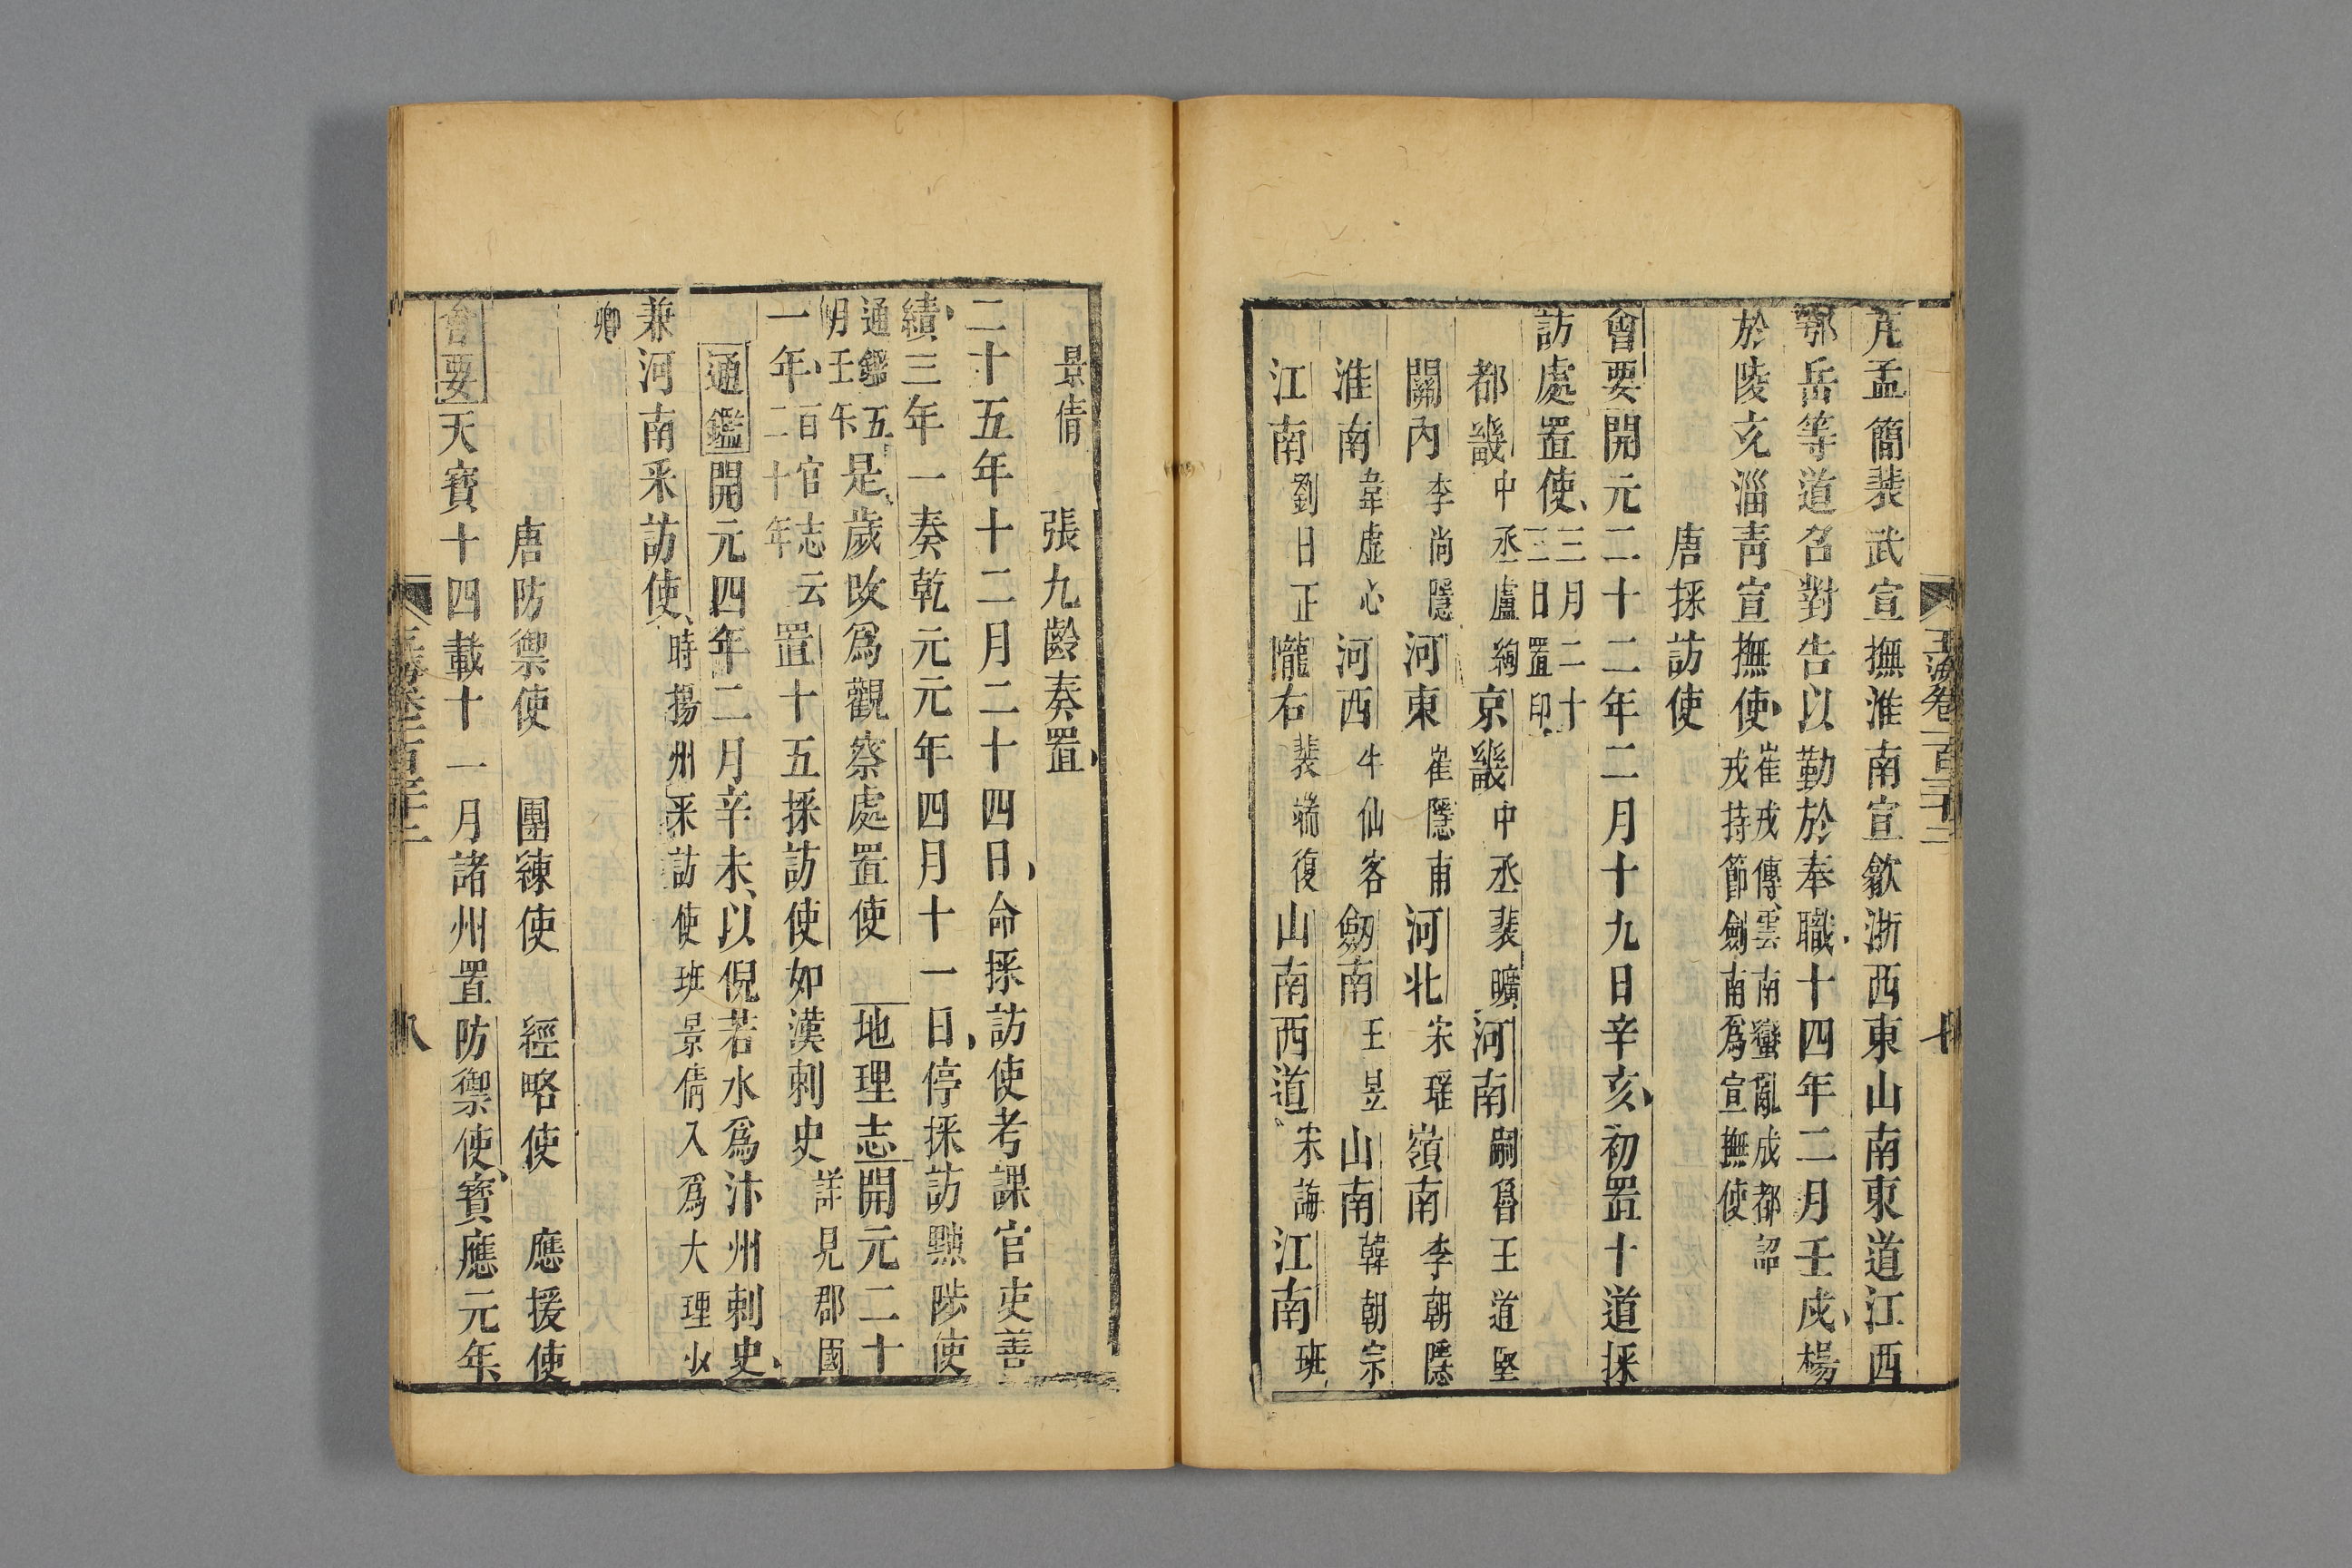 玉海卷一百三十二
亢孟簡裴武宣撫淮南宣歙浙西東山南東道江西
鄂岳等道召對告以勤於奉職十四年二月壬戌楊
於陵充淄青宣撫使崔戎傳雲南蠻亂成都詔戎持節劍南爲宣撫使
唐採訪使
會要開元二十二年二月十九日辛亥初置十道採
訪處置使三月二十三日置印
都畿中丞盧絢京畿中丞裴曠河南嗣魯王道堅
關內李尚隱河東崔隱甫河北宋瑤嶺南李朝隱
淮南韋虛心河西牛仙客劒南王昱山南韓朝宗
江南劉日正隴右裴端復山南西道宋詢江南班
景倩 張九齡奏置
二十五年十二月二十四日命採訪使考課官吏善
績三年一奏乾元元年四月十一日停採訪黜陟使
通鑑五月壬午是歲改爲觀察處置使 地理志開元二十
一年百官志云二十年置十五採訪使如漢刺史詳見郡國
通鑑開元四年二月辛未以倪若水爲汴州刺史
兼河南采訪使時揚州采訪使班景倩入爲大理少
卿
唐防禦使 團練使 經略使 應援使
會要天寶十四載十一月諸州置防禦使寶應元年
卷一百三十二